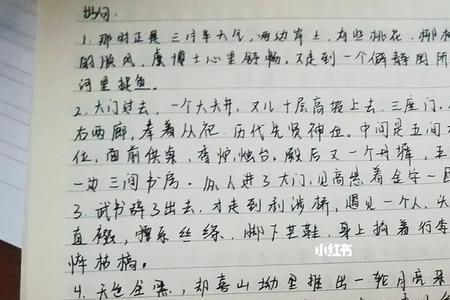 妙句:
1. 那时正是三月半天气,两边岸上,有些桃花、柳
的顺风,虞博士心里舒畅。又走到一个僻静的所
河里捉鱼。
2. 大门过去,一个大天井。又几十层高坡上去,三座门。
右两廊,奉着从祀、历代先贤神位。中间是五间大
位,面前供桌、香炉、烛台。殿后又一个丹墀,五
一边三间书房。众人进了大门,见高悬着金字一匾
3. 武书辞了出去,才走到利涉桥,遇见一个人,头
直裰,擐系丝绦,脚下芒鞋,身上掮着行李
悴枯槁。
4. 天色全黑,却喜山坳里推出一轮月亮来
小红书